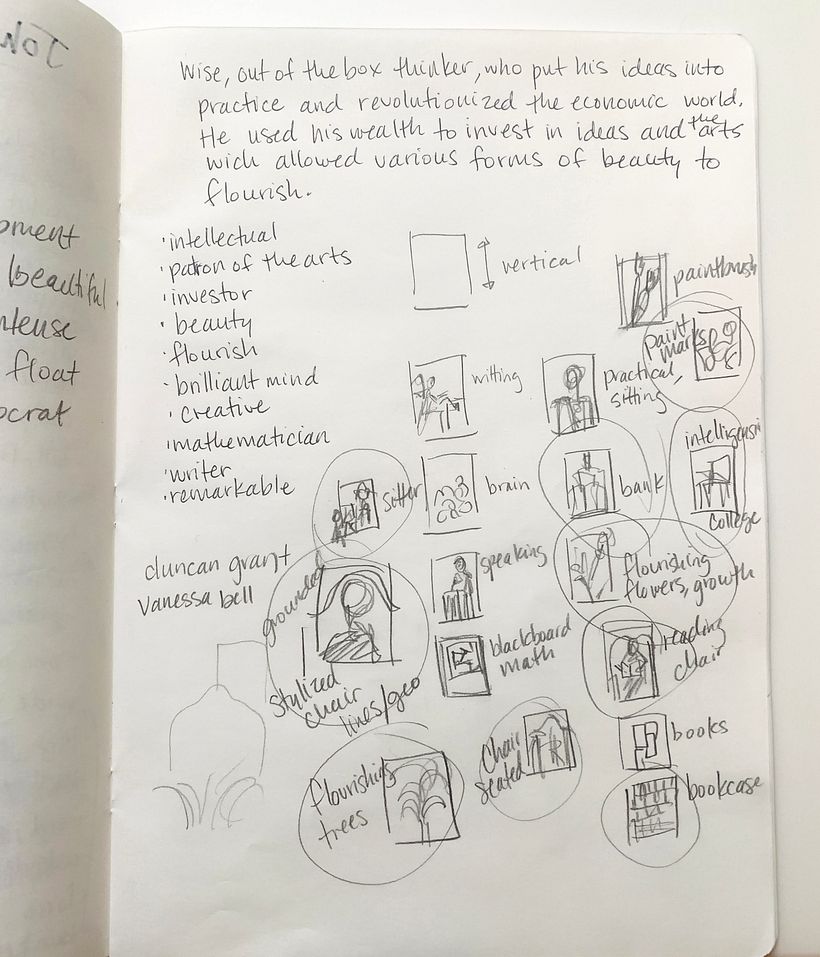 Wise, out of the box thinker, who put his ideas into
practice and revolutionized the economic world.
He used his wealth to invest in ideas and the arts
wich allowed various forms of beauty to
flourish.
·intellectual
·patron of the arts
·investor
·beauty
·flourish
·brilliant mind
·creative
·mathematician
·writer
·remarkable
duncan grant
vanessa bell
vertical
paintbrush
paint
marks
writing
practical,
sitting
sitter
brain
bank
college
grounded
speaking
flourishing
flowers, growth
stylized
chair
lines/geo
blackboard
math
reading
chair
flourishing
trees
chair
seated
books
bookcase
beautiful
float